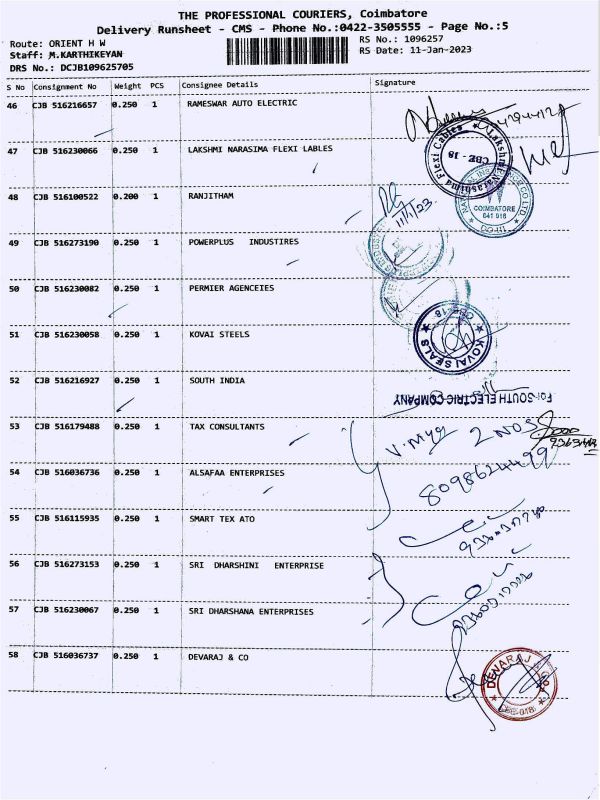 THE PROFESSIONAL COURIERS, Coimbatore
Delivery Runsheet - CMS - Phone No.:0422-3505555 - Page No.:5
Route: ORIENT H W
RS No.: 1096257
Staff: M.KARTHIKEYAN
RS Date: 11-Jan-2023
DRS No.: DCJB109625705
S No Consignment No Weight PCS Consignee Details Signature
46 CJB 516216657 0.250 1 RAMESWAR AUTO ELECTRIC
47 CJB 516230066 0.250 1 LAKSHMI NARASIMA FLEXI LABLES
Lakshmi Narasihma Flexi Cables
CBE - 18
48 CJB 516100522 0.200 1 RANJITHAM
11/1/23
COIMBATORE
641 018
49 CJB 516273190 0.250 1 POWERPLUS INDUSTIRES
50 CJB 516230082 0.250 1 PERMIER AGENCEIES
51 CJB 516230058 0.250 1 KOVAI STEELS
KOVAI SEALS
CBE-18
52 CJB 516216927 0.250 1 SOUTH INDIA
For SOUTH ELECTRIC COMPANY
53 CJB 516179488 0.250 1 TAX CONSULTANTS
2 NOS
54 CJB 516036736 0.250 1 ALSAFAA ENTERPRISES
8098624499
55 CJB 516115935 0.250 1 SMART TEX ATO
56 CJB 516273153 0.250 1 SRI DHARSHINI ENTERPRISE
57 CJB 516230067 0.250 1 SRI DHARSHANA ENTERPRISES
58 CJB 516036737 0.250 1 DEVARAJ & CO
DEVARAJ & CO.